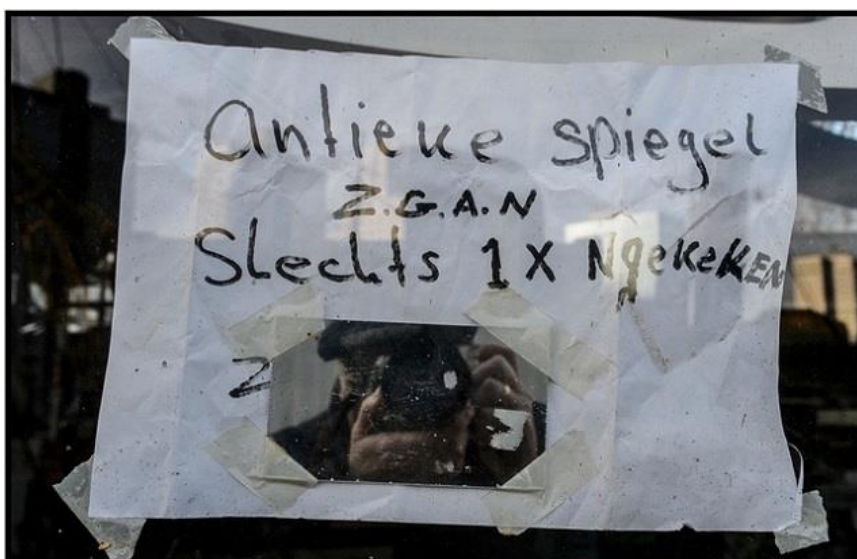 Antieke spiegel
Z.G.A.N
Slechts 1X Ngekeken
Z